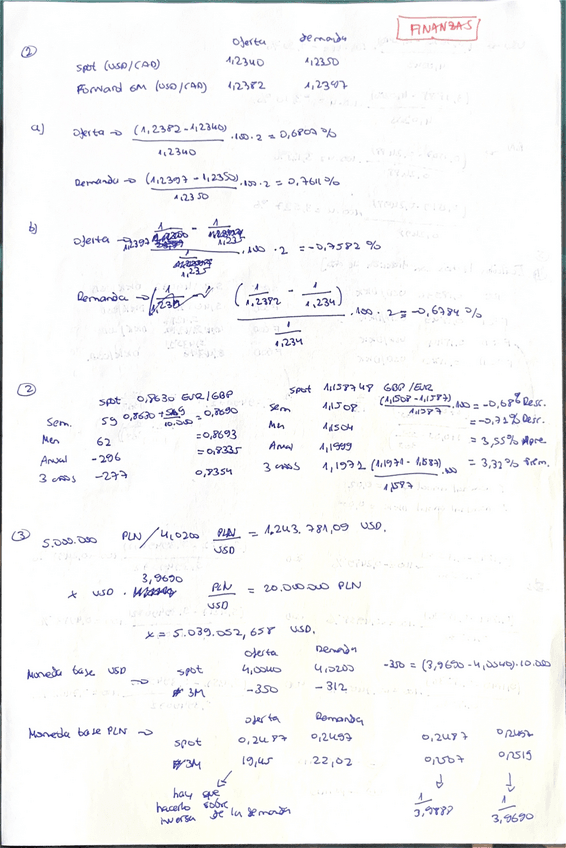 FINANZAS
② Oferta Demanda
Spot (USD/CAD) 1,2340 1,2350
Forward 6M (USD/CAD) 1,2382 1,2397
a) Oferta → (1,2382 - 1,2340) / 1,2340 · 100 · 2 = 0,6807 %
Demanda → (1,2397 - 1,2350) / 1,2350 · 100 · 2 = 0,7611 %
b) Oferta → 1/1,2397 - 1/1,235 / 1/1,235 · 100 · 2 = -0,7582 %
Demanda → (1/1,2382 - 1/1,234) / 1/1,234 · 100 · 2 = -0,6784 %
② Spot 0,8630 EUR/GBP Spot 1,158748 GBP/EUR
Sem. 59 0,8630 + 59/10.000 = 0,8690 Sem 1,1508 (1,1508 - 1,1587)/1,1587 · 100 = -0,68% Desc.
Men 62 = 0,8693 Mn 1,1504 = -0,72% Desc.
Anual -296 = 0,8335 Anual 1,1999 = 3,55% Apre.
3 años -277 0,8354 3 años 1,1972 (1,1971 - 1,1587)/1,1587 · 100 = 3,32% Prem.
③ 5.000.000 PLN / 4,0200 PLN/USD = 1.243.781,09 USD.
x USD · 3,9690 PLN/USD = 20.000.000 PLN
x = 5.039.052,658 USD.
Oferta Demanda
Moneda base USD → Spot 4,0040 4,0200 -350 = (3,9690 - 4,0040) · 10.000
3M -350 -312
Oferta Demanda
Moneda base PLN → Spot 0,2487 0,2497 0,2487 0,2497
3M 19,45 22,02 0,2507 0,2519
hay que 1/3,9888 1/3,9690
hacerlo sobre
inversa de la demanda